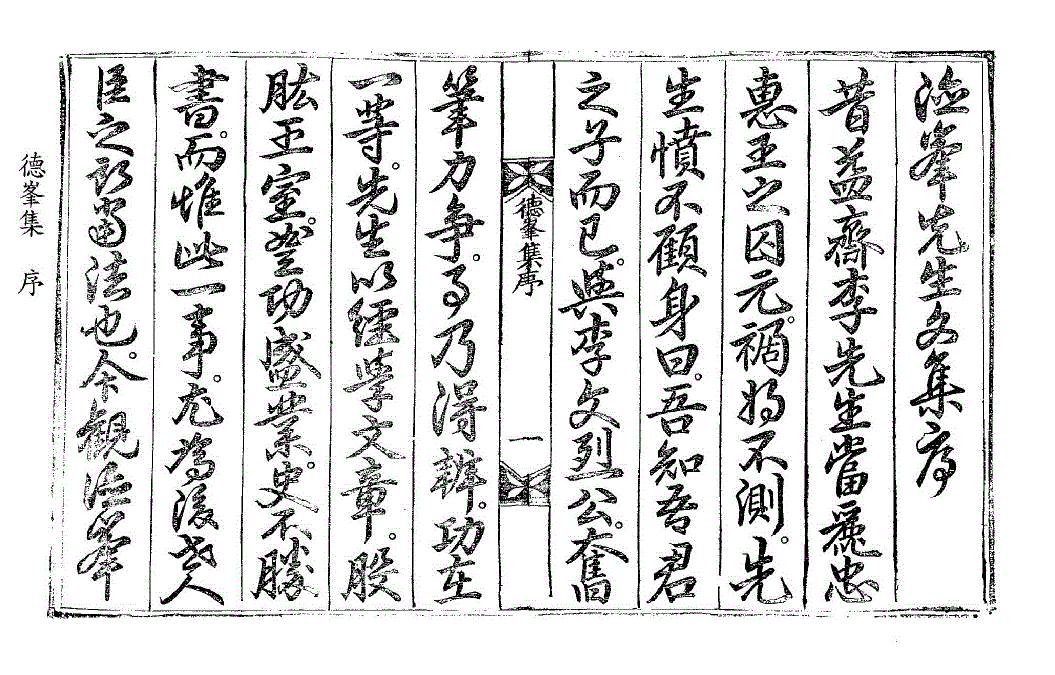 德峯先生文集序
昔益齋李先生當麗忠
惠王之囚元。禍將不測。先
生憤不顧身曰。吾知吾君
之子而已。與李文烈公。奮
德峯集序 一
筆力爭。事乃得辨。功在
一等。先生以經學文章。股
肱王室。豊功盛業。史不勝
書。而惟此一事。尤爲後世人
臣之所當法也。今觀德峯
德峯集 序